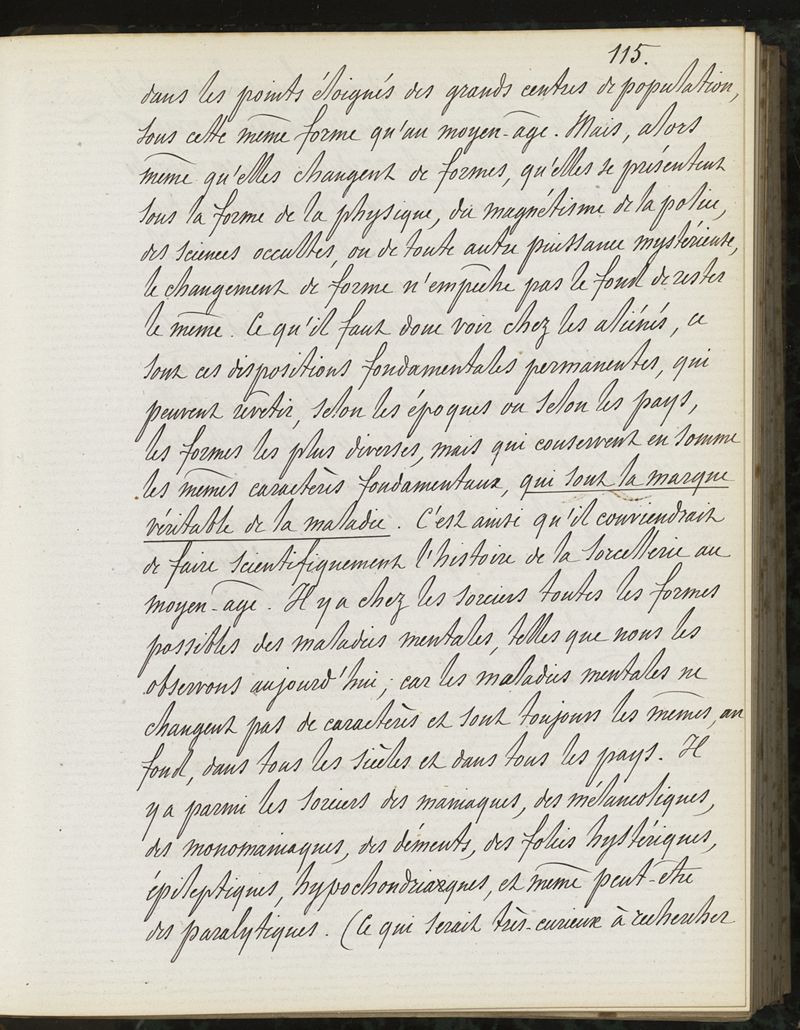 115.
dans les points éloignés des grands centres de population,
sous cette même forme qu'au moyen-âge. Mais, alors
même qu'elles changent de formes, qu'elles se présentent
sous la forme de la physique, du magnétisme de la police,
des sciences occultes, ou de toute autre puissance mystérieuse,
le changement de forme n'empêche pas le fond de rester
le même. Ce qu'il faut donc voir chez les aliénés, ce
sont ces dispositions fondamentales permanentes, qui
peuvent revêtir, selon les époques ou selon les pays,
les formes les plus diverses, mais qui conservent en somme
les mêmes caractères fondamentaux, qui sont la marque
véritable de la maladie. C'est ainsi qu'il conviendrait
de faire scientifiquement l'histoire de la sorcellerie au
moyen-âge. Il y a chez les sorciers toutes les formes
possibles des maladies mentales, telles que nous les
observons aujourd'hui; car les maladies mentales ne
changent pas de caractères et sont toujours les mêmes, au
fond, dans tous les siècles et dans tous les pays. Il
y a parmi les sorciers des maniaques, des mélancoliques,
des monomaniaques, des déments, des folies hystériques,
épileptiques, hypochondriaques, et même peut-être
des paralytiques. (Ce qui serait très-curieux à rechercher